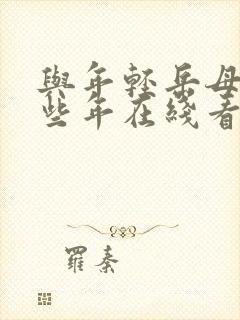 與年輕岳母
些年在綫看
羅秦